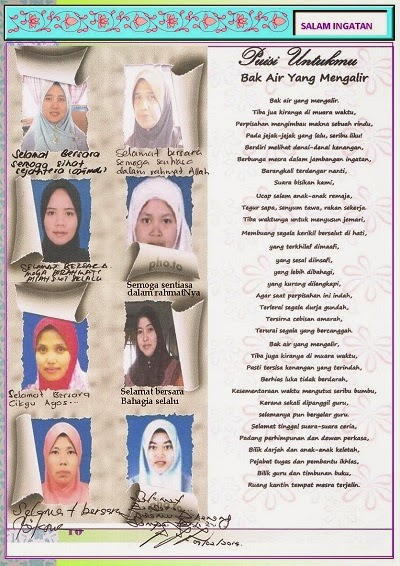 SALAM INGATAN
Selamat Bersara
semoga sihat
sejahtera
Selamat bersara
semoga sentiasa
dalam rahmat Allah
SELAMAT BERSARA
MOGA DIRAHMATI
SELALU
pho.to
Semoga sentiasa
dalam rahmatNya
Selamat Bersara
Cikgu Agos...
Selamat bersara
Bahagia selalu
Selamat bersara
10
Puisi Untukmu
Bak Air Yang Mengalir
Bak air yang mengalir.
Tiba jua kiranya di muara waktu,
Perpisahan mengimbau makna sebuah rindu,
Pada jejak-jejak yang lalu, seribu liku!
Berdiri melihat denai-denai kenangan,
Berbunga mesra dalam jambangan ingatan,
Barangkali terdengar nanti,
Suara bisikan kami,
Ucap salam anak-anak remaja,
Tegur sapa, senyum tawa, rakan sekerja.
Tiba waktunya untuk menyusun jemari,
Membuang segala kerikil berselut di hati,
yang terkhilaf dimaafi,
yang sesal diinsafi,
yang lebih dibahagi,
yang kurang dilengkapi,
Agar saat perpisahan ini indah,
Terlerai segala durja gundah,
Tersirna cebisan amarah,
Terurai segala yang bercanggah.
Bak air yang mengalir,
Tiba juga kiranya di muara waktu,
Pasti tersisa kenangan yang terindah,
Berhias luka tidak berdarah,
Kesementaraan waktu mengutus seribu bumbu,
Kerana sekali dipanggil guru,
selamanya pun bergelar guru.
Selamat tinggal suara-suara ceria,
Padang perhimpunan dan dewan perkasa,
Bilik darjah dan anak-anak keletah,
Pejabat tugas dan pembantu ikhlas,
Bilik guru dan timbunan buku,
Ruang kantin tempat mesra terjalin.